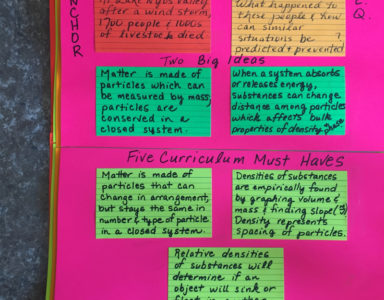 ANCHOR
In Lake Nyos valley
after a wind storm,
1700 people & 1000s
of livestock died
What happened to
these people & how
can similar
situations be
predicted & prevented?
E.
Q.
Two Big Ideas
Matter is made of
particles which can
be measured by mass;
particles are
conserved in a
closed system.
When a system absorbs
or releases energy,
substances can change
distance among particles
which affects bulk
properties of density & phase
Five Curriculum Must Haves
Matter is made of
particles that can
change in arrangement,
but stays the same in
number & type of particle
in a closed system.
Densities of substances
are empirically found
by graphing volume &
mass & finding slope
Density represents
spacing of particles.
Relative densities
of substances will
determine if an
object will sink or